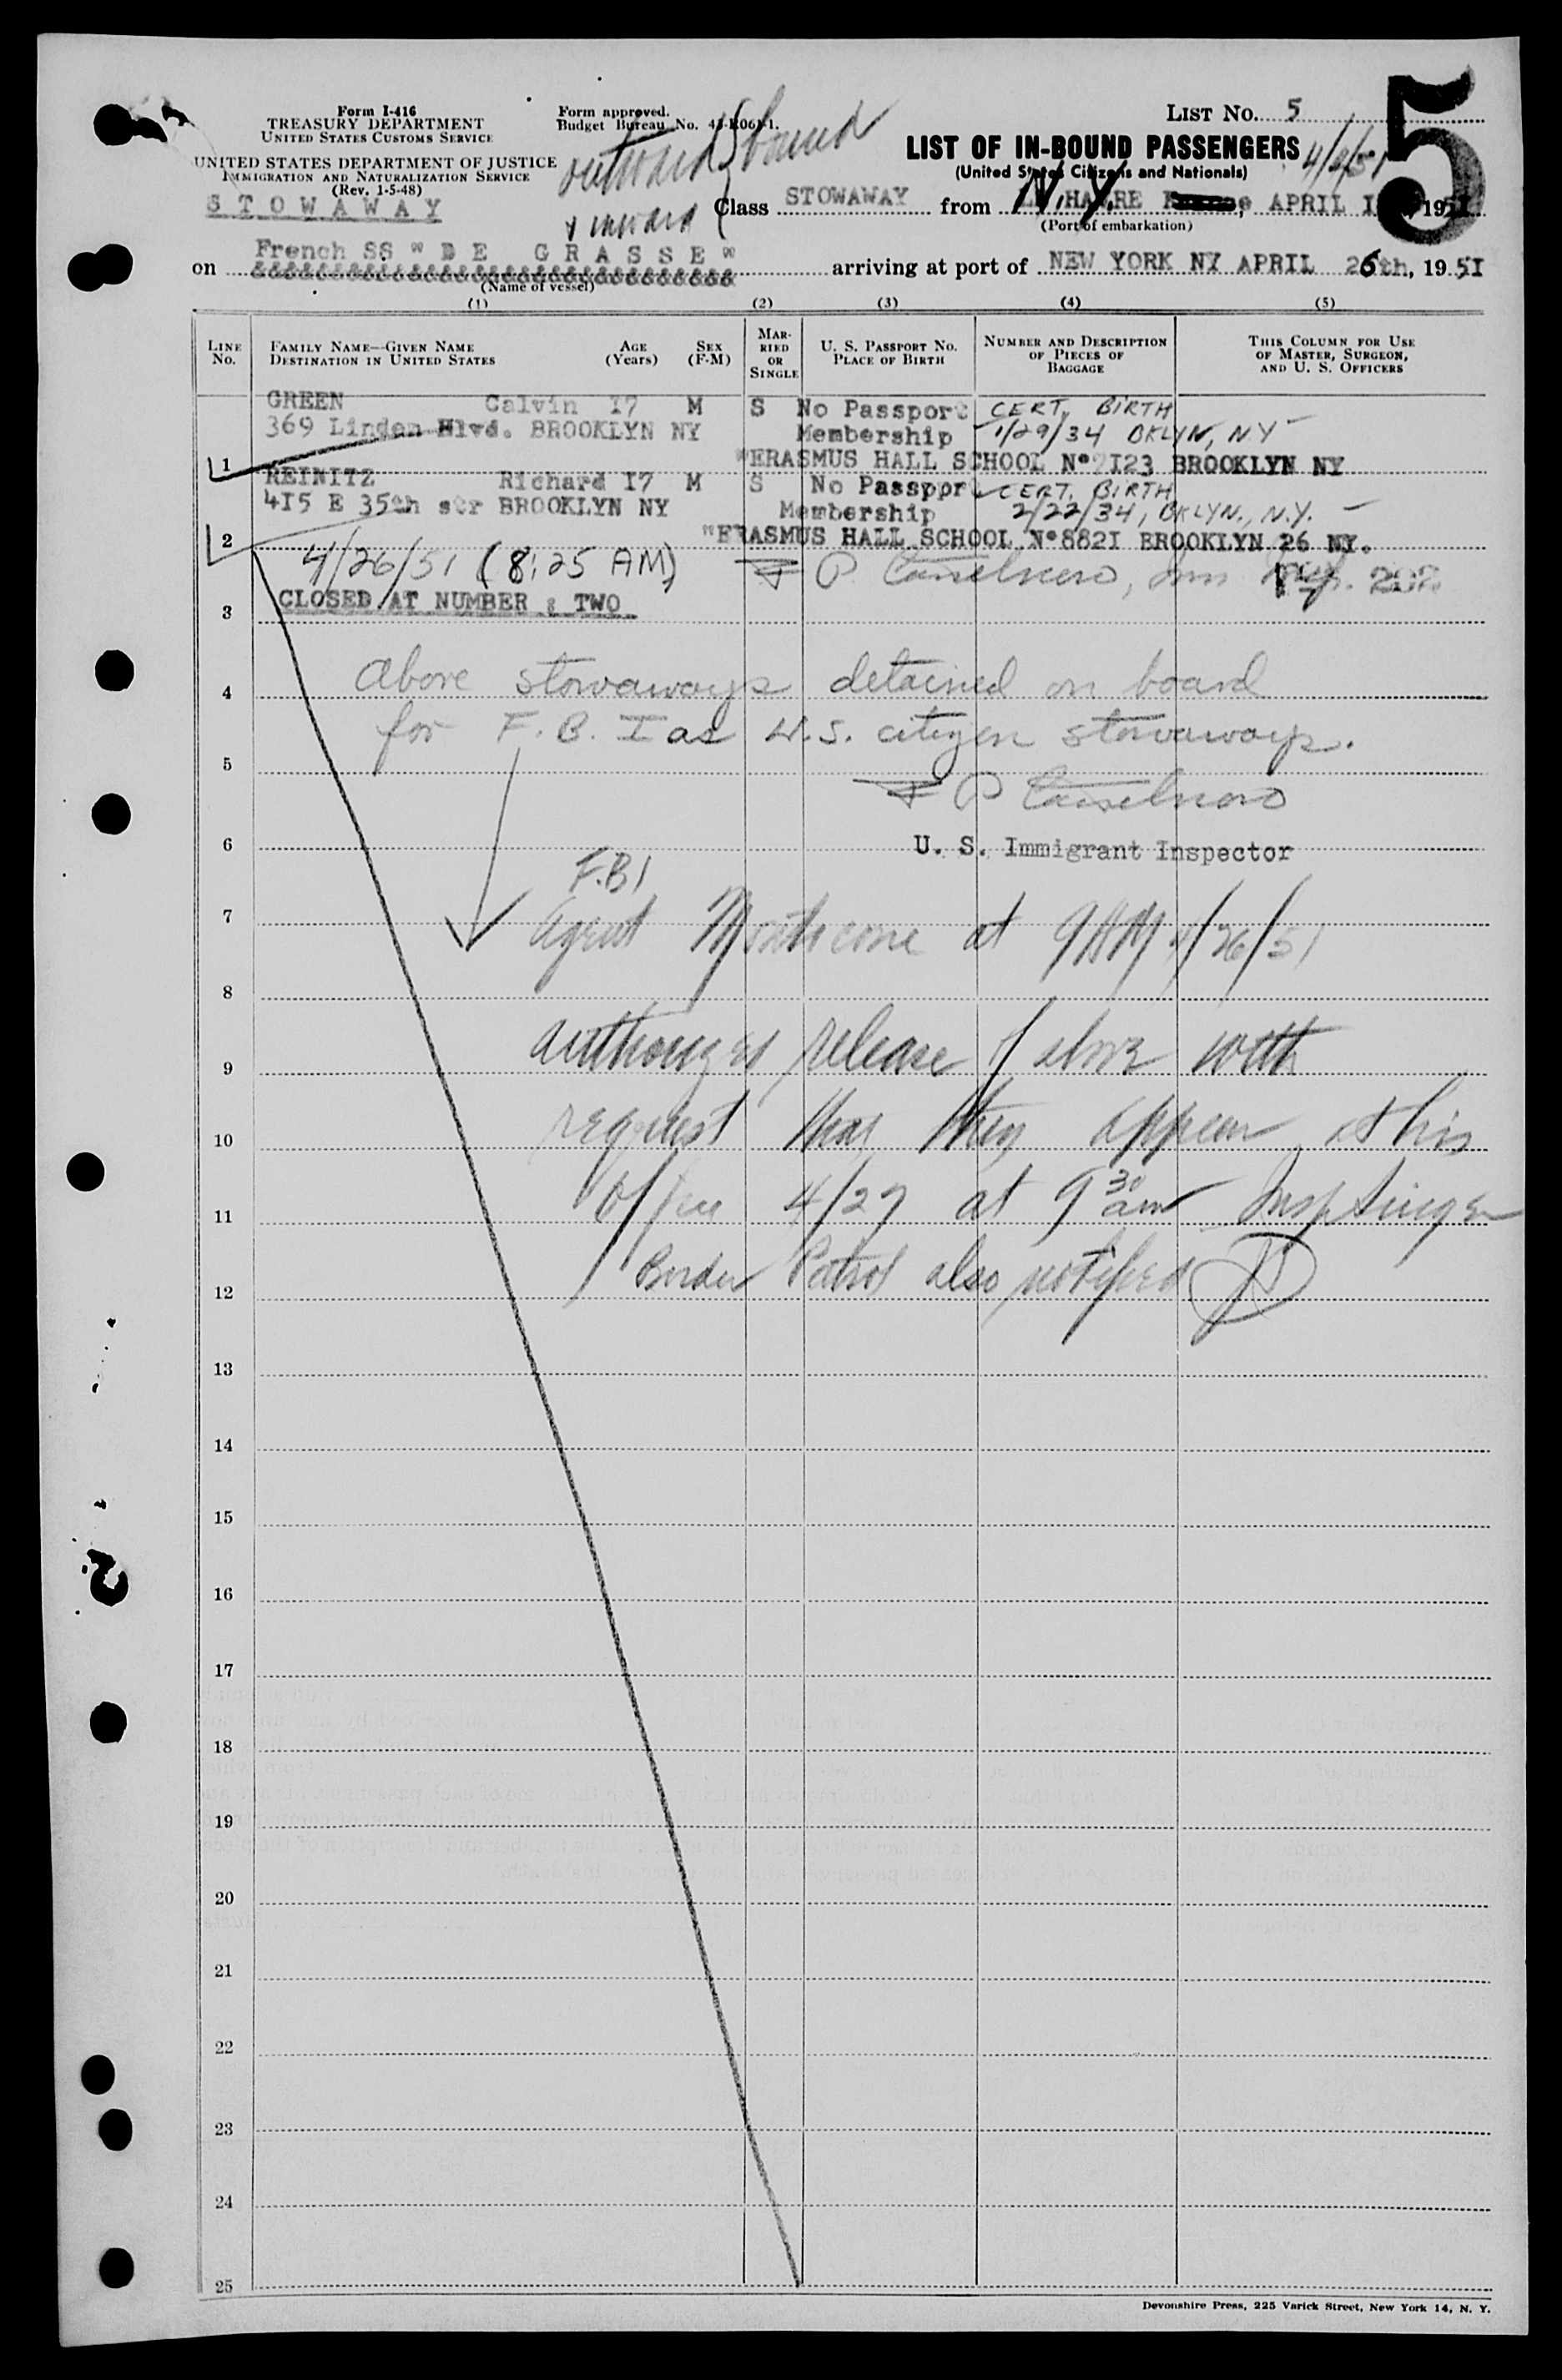 Form I-416
TREASURY DEPARTMENT
UNITED STATES CUSTOMS SERVICE
UNITED STATES DEPARTMENT OF JUSTICE
IMMIGRATION AND NATURALIZATION SERVICE
(Rev. 1-5-48)
STOWAWAY
Form approved.
Budget Bureau No.
outward bound
& inward
LIST No. 5
5
LIST OF IN-BOUND PASSENGERS
(United States Citizens and Nationals)
Class STOWAWAY from N.Y. APRIL 1951
(Port of embarkation)
on French SS "DE GRASSE" arriving at port of NEW YORK NY APRIL 26th, 1951
&&&&&&&&&&&&&&&&&&&&&&&&&&&&&&
(Name of vessel)
(1) (2) (3) (4) (5)
LINE No. FAMILY NAME—GIVEN NAME DESTINATION IN UNITED STATES AGE (Years) SEX (F-M) MARRIED OR SINGLE U. S. PASSPORT No. PLACE OF BIRTH NUMBER AND DESCRIPTION OF PIECES OF BAGGAGE THIS COLUMN FOR USE OF MASTER, SURGEON, AND U. S. OFFICERS
GREEN Calvin I7 M S No Passport CERT. BIRTH
369 Linden Blvd. BROOKLYN NY Membership 1/29/34 BKLYN, NY
1 "ERASMUS HALL SCHOOL N° I23 BROOKLYN NY
REINITZ Richard I7 M S No Passport CERT. BIRTH
4I5 E 35th str BROOKLYN NY Membership 2/22/34, BKLYN., N.Y.
2 "ERASMUS HALL SCHOOL N°882I BROOKLYN 26 NY.
4/26/51 (8:25 AM)
3 CLOSED AT NUMBER : TWO
4 Above stowaways detained on board
5 for F.B.I as U.S. citizen stowaways.
6 U. S. Immigrant Inspector
F.B.I
7 Agent at 9 AM 4/26/51
8
9 authorizes release of above with
10 request that they appear at his
11 office 4/27 at 9 30 am Insp
12 Border Patrol also notified
13
14
15
16
17
18
19
20
21
22
23
24
25
Devonshire Press, 225 Varick Street, New York 14, N. Y.